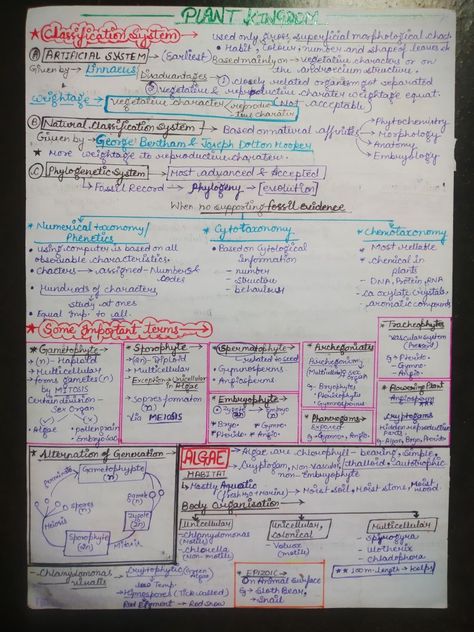 PLANT KINGDOM
★ Classification System → used only gross superficial morphological charac.
• Habit, colour, number and shape of leaves etc
Ⓐ ARTIFICIAL SYSTEM → (Earliest) Based mainly on → vegetative characters or on the androecium structure.
Given by → Linnaeus
Disadvantages
① closely related organisms got separated
② vegetative & reproductive character weightage equal.
Weightage → vegetative character > reproductive character (Not acceptable)
Ⓑ Natural Classification System → Based on natural affinities → Phytochemistry
→ Morphology
→ Anatomy
→ Embryology
Given by → George Bentham & Joseph Dalton Hooker
★ More weightage to reproductive character.
Ⓒ Phylogenetic System → Most advanced & accepted
↳ Fossil Record → Phylogeny → evolution
When no supporting fossil evidence
* Numerical taxonomy/ Phenetics
• using computer is based on all observable characteristics.
• Characters → assigned - Numbers & codes
• Hundreds of characters
↓ study at ones
• Equal imp. to all.
* Cytotaxonomy
• Based on Cytological Information
- number
- structure
- behaviours
* Chemotaxonomy
* Most reliable
* chemical in plants
- DNA, Protein, RNA
- Ca oxalate crystals, aromatic compounds
★ Some Important terms →
★ Gametophyte
• (n) - Haploid
• Multicellular
• forms gametes (n) by MITOSIS
Certain division → Sex Organ
• Algae • pollen grain
• Embryo sac
★ Sporophyte
• (2n) - Diploid
• Multicellular
Exception → Unicellular Algae
• Spores formation (n)
• via MEIOSIS
★ Spermatophyte
↳ related to seed
• Gymnosperms
• Angiosperms
★ Embryophyte
• Zygote (2n) → Embryo (2n)
• Bryo. • Gymno.
• Pterido. • Angio.
★ Archegoniates
Archegonium
(Multicellular) Sex organ
Eg- Bryophyte
Pteridophyte
Gymnosperms
★ Phanerogams
Exposed
Eg- Gymno, Angio.
★ Tracheophytes
Vascular system (Present)
Eg • Pterido.
- Gymno.
- Angio.
★ Flowering Plant
- Angiosperm
★ Cryptogams
Hidden reproductive parts
Eg- Algae, Bryo, Pterido
★ Alternation of Generation
Gametophyte (n)
Gamete (n)
Zygote (2n)
Meiosis
Sporophyte (2n)
Spores (n)
ALGAE
→ Algae are chlorophyll-bearing, simple,
→ Cryptogam, Non vascular, thalloid, autotrophic
- non-embryophyte
HABITAT
↳ Mostly Aquatic (Fresh H₂O + Marine) → Moist soil, Moist stone, Moist wood
Body Organisation →
Unicellular
- Chlamydomonas (motile)
- Chlorella (Non-motile)
Unicellular, colonical
- Volvox (motile)
Multicellular
- Spirogyra
- Ulothrix
- Cladophora
** 100 m - Length → Kelps
- Chlamydomonas
→ Cryptophytic (Green Algae)
↓ low Temp.
Red Pigment → Red snow
★ EPIZOIC →
On Animal Surface
Eg → Sloth Bear,
→ Snail